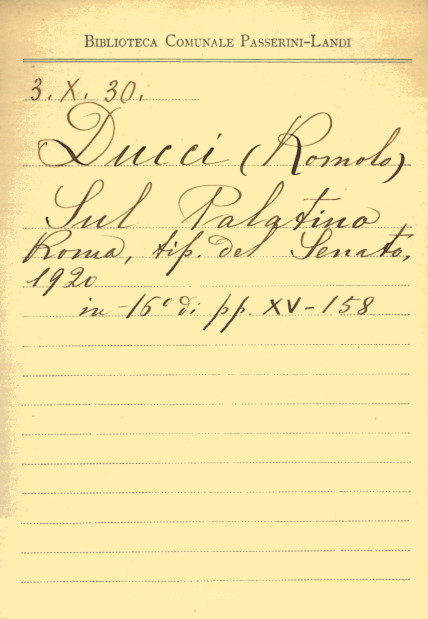 BIBLIOTECA COMUNALE PASSERINI-LANDI
3. X. 30.
Ducci (Romolo)
Sul Palatino
Roma, tip. del Senato,
1920
in-16° di pp. XV-158